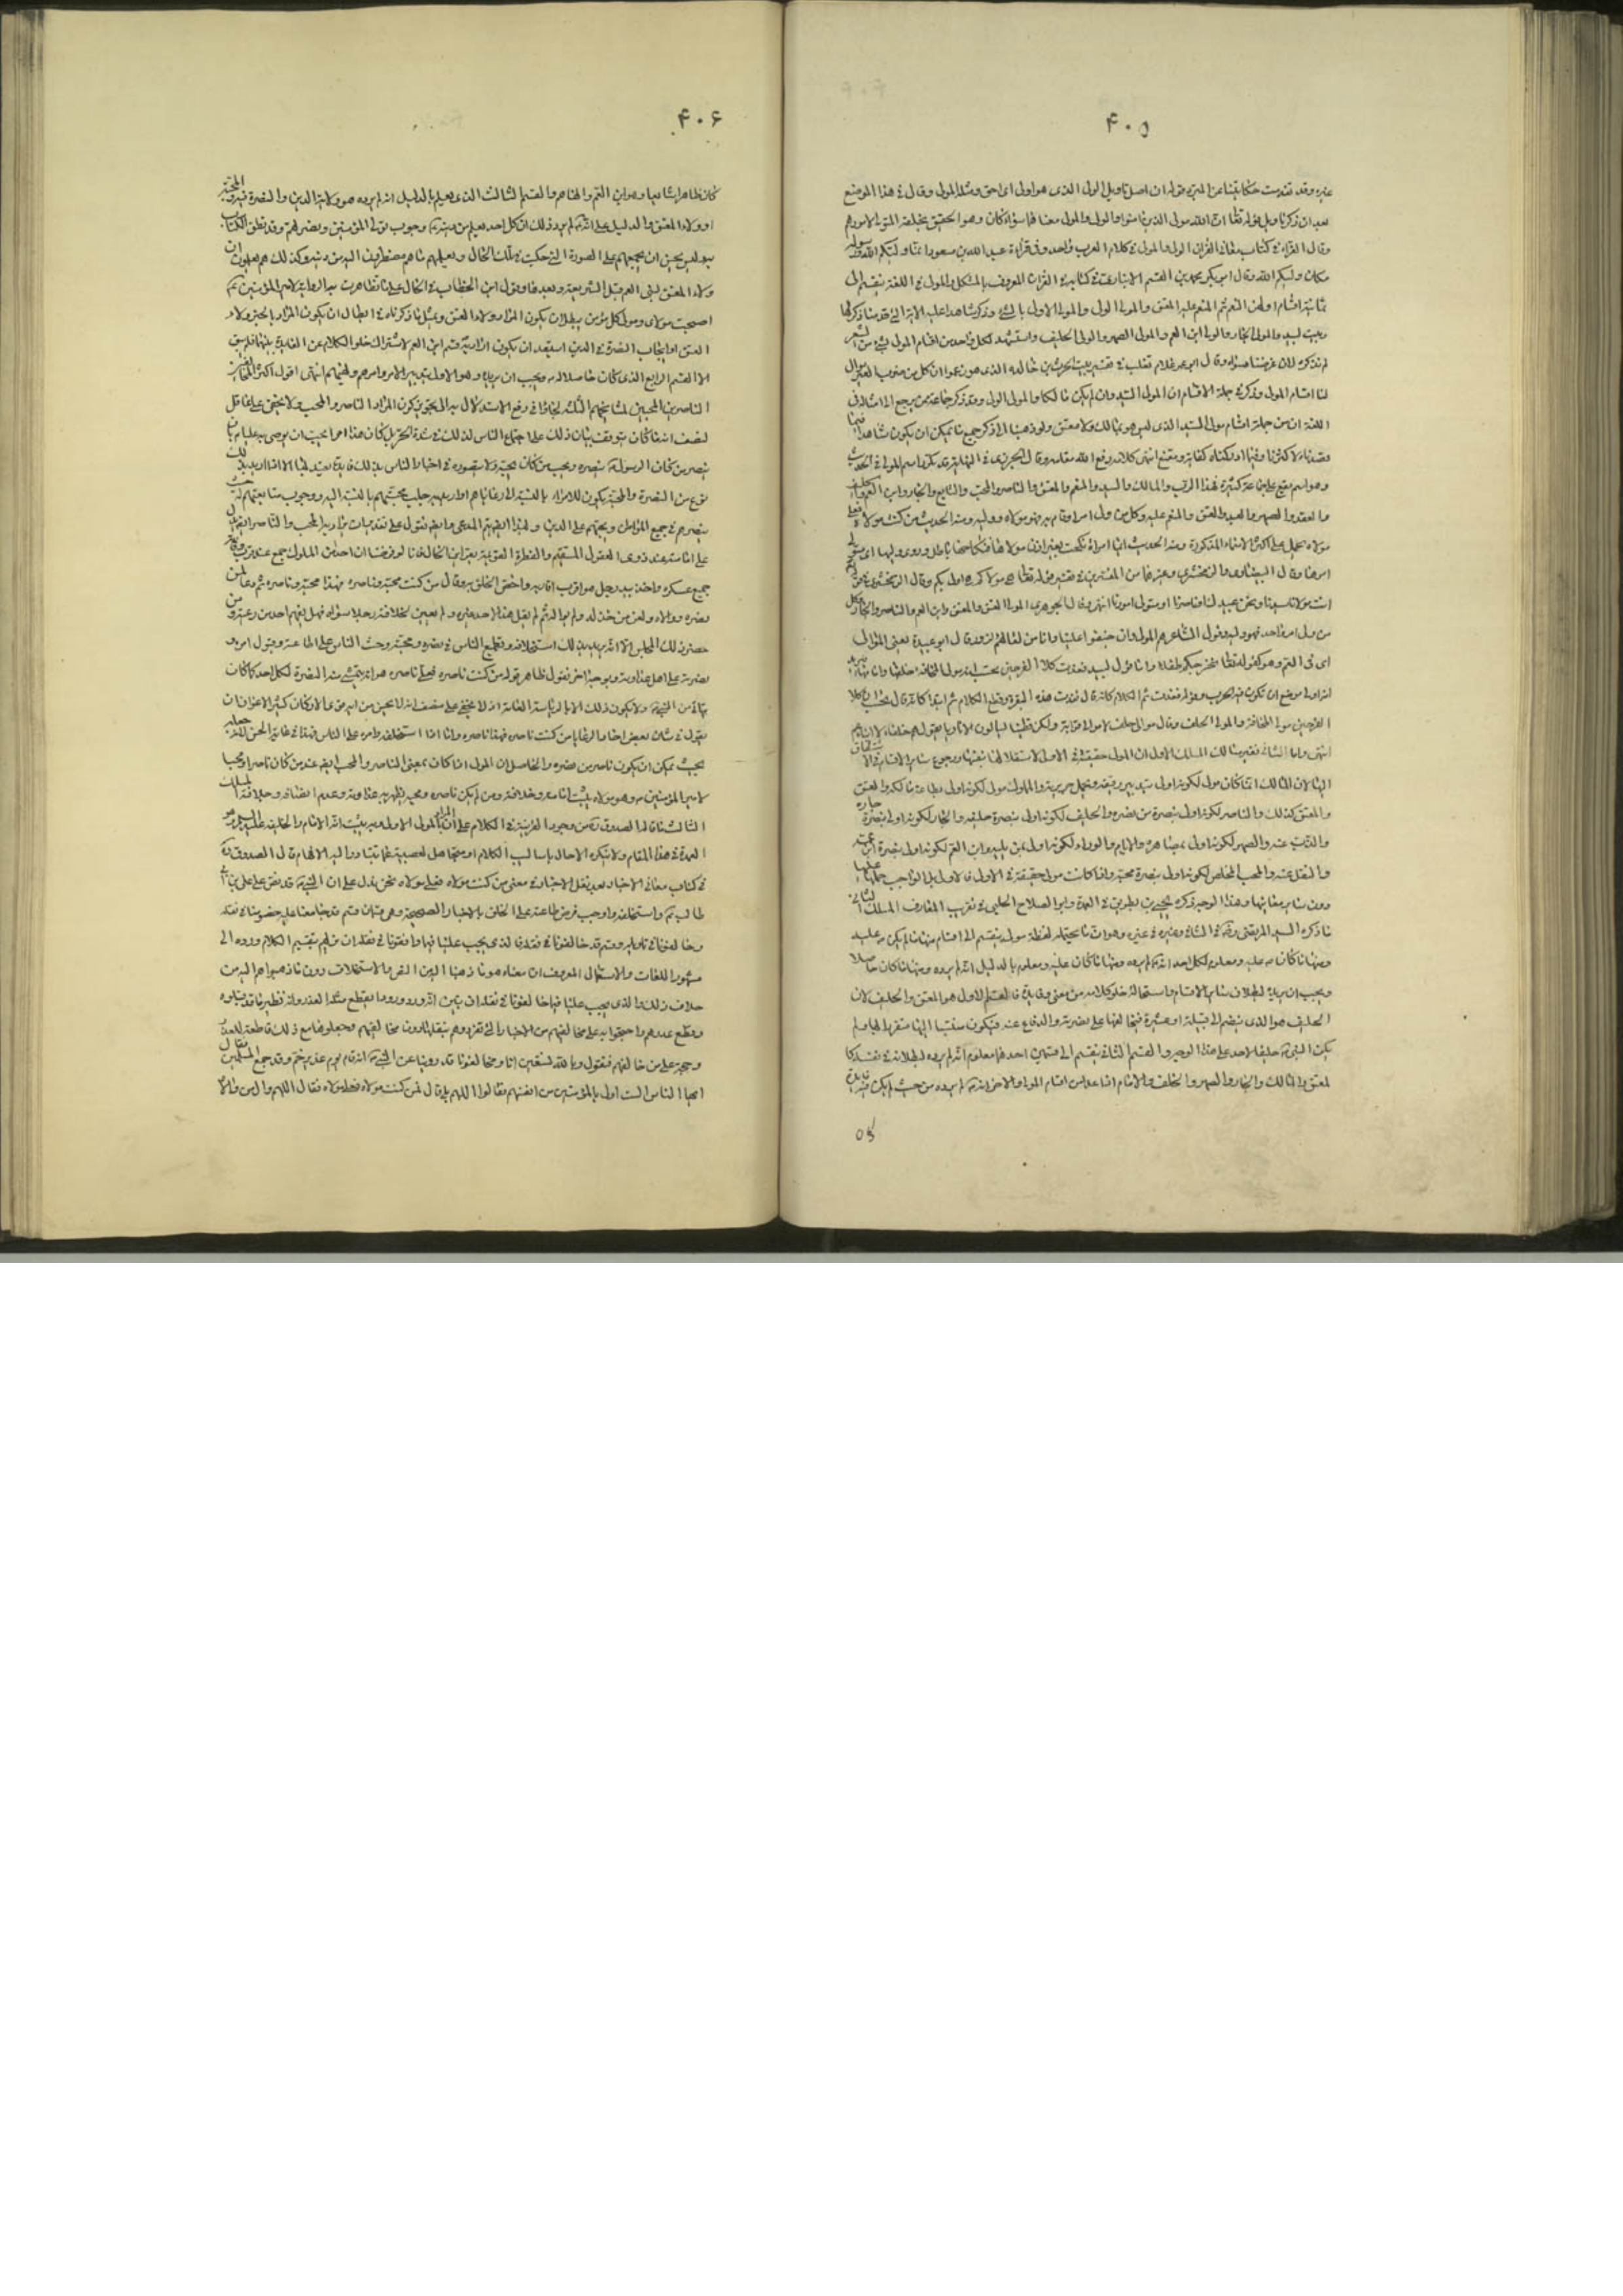 ۴۰۵
غيره وقد تقدمت حكايتنا عن المبرد قوله ان اصل تاويل الولى الذى هو اولى اى احق ومثله المولى وقال فى هذا الموضع
بعد ان ذكر تاويل قوله تعالى ان الله مولى الذين امنوا والولى والمولى معناهما سواء
وقال الفراء فى كتاب معانى القران الولى والمولى فى كلام العرب واحد وفى قراءة عبد الله بن مسعود انما وليكم الله ورسوله
مكان وليكم الله وقال ابو بكر محمد بن القسم الانبارى فى كتابه فى القران المعروف بالمشكل والمولى فى اللغة ينقسم الى
ثمانية اقسام اولهن المنعم ثم المنعم عليه المعتق والمولى الولى والمولى الاولى بالشئ وذكر شاهدا عليه الاية التى قدمنا ذكرها
وبيت لبيد والمولى الجار والمولى ابن العم والمولى الصهر والمولى الحليف واستشهد لكل واحد من اقسام المولى بشئ من الشعر
لم نذكره لان غرضنا سواه وقال ابو عمر غلام ثعلب فى تفسير بيت الحرث بن حلزة الذى هو زعموا ان كل من ضرب العير موال
لنا اقسام المولى وذكر فى جملة الاقسام ان المولى السيد وان لم يكن مالكا والمولى الولى وقد ذكر جماعة ممن يرجع الى امثاله فى
اللغة ان من جملة اقسام مولى السيد الذى ليس هو بمالك ولا معتق ولو ذهبنا الى ذكر جميع ما يمكن ان يكون شاهدا فيما
قصدناه لاكثرنا وفيما اوردناه كفاية ومقنع انتهى كلامه رفع الله مقامه وقال الجزرى فى النهاية قد تكرر اسم المولى فى الحديث
وهو اسم يقع على جماعة كثيرة فهذا الرب والمالك والسيد والمنعم والمعتق والناصر والمحب والتابع والجار وابن العم والحليف
والعقيد والصهر والعبد والمعتق والمنعم عليه وكل من ولى امرا وقام به فهو مولاه ووليه ومنه الحديث من كنت مولاه فعلى
مولاه يحمل على اكثر الاسماء المذكورة ومنه الحديث ايما امراة نكحت بغير اذن مولاها فنكاحها باطل وروى وليها اى متولى
امرها وقال البيضاوى والزمخشرى وغيرهما من المفسرين فى تفسير قوله تعالى هى مولاكم هى اولى بكم وقال الزمخشرى فى قوله
انت مولانا سيدنا ونحن عبيدك او ناصرنا او متولى امورنا انتهى وقال الجوهرى المولى المعتق والمعتق وابن العم والناصر والجار وكل
من ولى امر واحد فهو وليه وقول الشاعر هم المولى وان جنفوا علينا وانا من لقائهم لزور قال ابو عبيدة يعنى الموالى
اى بنى العم وهو كقوله تعالى ثم يخرجكم طفلا واما قول لبيد فغدت كلا الفرجين تحسب انه مولى المخافة خلفها وامامها يريد
انه اولى موضع ان تكون فيه الحرب وقوله فغدت تم الكلام كانه قال فغدت هذه البقرة وقطع الكلام ثم ابتدا كانه قال تحسب ان كلا
الفرجين مولى المخافة والمولى الحليف وقال موالى حلف لا موالى قرابة ولكن قطينا يسالون الاتاويا يقول هم حلفاء لا ابناء عم
انتهى واما الثانى ففيه مسالك المسلك الاول ان المولى حقيقة فى الاولى لاستقلالها بنفسها ورجوع سائر الاقسام فى الاشتقاق
اليها لان المالك انما كان مولى لكونه اولى بتدبير رقيقه وبحمل جريرته والمملوك مولى لكونه اولى بطاعة مالكه والمعتق
والمعتق كذلك والناصر لكونه اولى بنصرة من نصره والحليف لكونه اولى بنصرة حليفه والجار لكونه اولى بنصرة جاره
والذب عنه والصهر لكونه اولى بمصاهره والامام والوراء لكونه اولى بمن يليه وابن العم لكونه اولى بنصرة ابن عمه
والعقل عنه والمحب المخلص لكونه اولى بنصرة محبه واذا كانت مولى حقيقة فى الاولى فالاولى بل الواجب حملها عليها
دون سائر معانيها وهذا الوجه ذكره يحيى بن بطريق فى العمدة وابو الصلاح الحلبى فى تقريب المعارف المسلك الثانى
ما ذكره السيد المرتضى فى الشافى وغيره فى غيره وهو ان ما يحتمله لفظة مولى ينقسم الى اقسام منها ما لم يكن عليه
ومنها ما كان عليه ومعلوم لكل احد انه لم يرده ومنها ما كان عليه ومعلوم بالدليل انه لم يرده ومنها ما كان حاصلا
ويجب ان يريده لبطلان سائر الاقسام واستحالة خلو كلامه من معنى وفائدة فالقسم الاول هو المعتق والحليف لان
الحليف هو الذى ينضم الى قبيلة او عشيرة فيحالفها على نصرته والدفاع عنه فيكون منتسبا اليها متعززا بها ولم
يكن النبى حليفا لاحد على هذا الوجه والقسم الثانى ينقسم الى قسمين احدهما معلوم انه لم يرده لبطلانه فى نفسه كا
لمعتق والمالك والجار والصهر والخلف والامام اذا عد من اقسام المولى والاخر انه لم يرده من حيث لم يكن فيه فائدة
۴۰۶
كان ظاهرا شايعا وهو ابن العم والقسم الثالث الذى يعلم بالدليل انه لم يرده هو ولاية الدين والنصرة فيه والمحبة
او ولاء المعتق والدليل على انه لم يرد ذلك ان كل احد يعلم من دينه وجوب تولى المؤمنين ونصرتهم وقد نطق الكتاب
به وليس يحسن ان يجمعهم على الصورة التى حكيت فى تلك الحال ويعلمهم ما هم مضطرون اليه من دينه وكذلك هم يعلمون ان
ولاء المعتق لبنى العم قبل الشريعة وبعدها وقول ابن الخطاب فى الحال على ما تظاهرت به الرواية لامير المؤمنين
اصبحت مولاى ومولى كل مؤمن يبطل ان يكون المراد ولاء العتق وبمثل ما ذكرناه فى ابطال ان يكون المراد بالخبر ولاء
العتق او ايجاب النصرة فى الدين استبعد ان يكون اراد به قسم ابن العم لاشتراك خلو الكلام عن الفائدة بينهما فلم يبق
الا القسم الرابع الذى كان حاصلا له ويجب ان يريده وهو الاولى بتدبير الامر وامرهم ونهيهم انتهى اقول اكثر المخالفين
لنصف انه ما كان يتوقف بيان ذلك على اجتماع الناس لذلك فى شدة الحر بل كان هذا امرا يجب ان يوصى به عليا بان
ينصر من كان الرسول ينصره ويحب من كان يحبه ولا يتصور فى اخبار الناس بذلك فائدة يعتد بها الا اذا اريد بذلك
نوع من النصرة والمحبة يكون للامراء بالنسبة الى رعاياهم او اريد به جلب محبتهم بالنسبة اليه ووجوب متابعتهم له حيث
ينصرهم فى جميع المواطن ويحبهم على الدين وبهذا ايضا يتم المدعى وايضا نقول على تقدير ان يراد به المحب والناصر ايضا يدل
على امامته عند ذوى العقول المستقيمة والفطرة القويمة بقرائن الحال فانا لو فرضنا ان احدا من الملوك جمع عند قرب وفاته
جميع عسكره واخذ بيد رجل هو اقرب اقاربه واخص الخلق به وقال من كنت محبه وناصره فهذا محبه وناصره ثم دعا لمن
نصره ووالاه ولعن من خذله ولم يواله ثم لم يقل هذا لاحد غيره ولم يعين لخلافته رجلا سواه فهل يفهم احد من رعيته ومن
حضر ذلك المجلس الا انه يريد بذلك استخلافه وتطميع الناس فى نصره ومحبته وحث الناس على اطاعته وقبول امره و
نصرته على عدوه وبوجه اخر نقول ظاهر قوله من كنت ناصره فعلى ناصره هو انه يتمشى منه النصرة لكل احد كما كان
يتاتى من النبى ولا يكون ذلك الا بالرياسة العامة اذ لا يخفى على منصف انه لا يحسن من امير قوى الاركان كثير الاعوان ان
يقول فى شان بعض احاد الرعايا من كنت ناصره فهذا ناصره واما اذا استخلفه وامره على الناس فهذا فى غاية الحسن لانه جعله
بحيث يمكن ان يكون ناصر من نصره والحاصل ان المولى اذا كان بمعنى الناصر والمحب ايضا
المسلك
الثالث ما قاله الصدوق من وجود القرينة فى الكلام على ان المراد بالمولى الاولى وبه يثبت انه الامام والخليفة
العمدة فى هذا المقام ولا ينكره الا جاهل باساليب الكلام او متجاهل لعصبيته عما تتبادر اليه الافهام قال الصدوق
فى كتاب معانى الاخبار بعد نقل الاخبار فى معنى من كنت مولاه فعلى مولاه نحن نستدل على ان النبى قد نص على على بن ابى
طالب واستخلفه واوجب فرض طاعته على الخلق بالاخبار الصحيحة وهى قسمان قسم قد جامعنا عليه خصومنا فى نقله
وخالفونا فى تاويله وقسم قد خالفونا فى نقله فالذى يجب علينا فيما وافقونا فى نقله ان نريهم بتقسيم الكلام ورده الى
مشهور اللغات والاستعمال المعروف ان معناه هو ما ذهبنا اليه من النص والاستخلاف دون ما ذهبوا هم اليه من
خلاف ذلك والذى يجب علينا فيما خالفونا فى نقله ان نبين انه ورد ورودا يقطع مثله العذر وانه نظير ما قد قبلوه
وقطع عذرهم واحتجوا به على مخالفيهم من الاخبار التى تفردوهم بنقلها دون مخالفيهم وجعلوها مع ذلك قاطعة للعذر
وحجة على من خالفهم فنقول وبالله نستعين انا ومخالفونا قد روينا عن النبى انه قام يوم غدير خم وقد جمع المسلمين فقال
ايها الناس الست اولى بالمؤمنين من انفسهم فقالوا اللهم بلى قال فمن كنت مولاه فعلى مولاه فقال اللهم وال من والاه